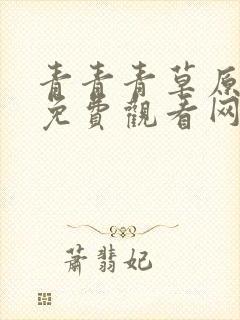 青青青草原
免費觀看网
萧翡妃